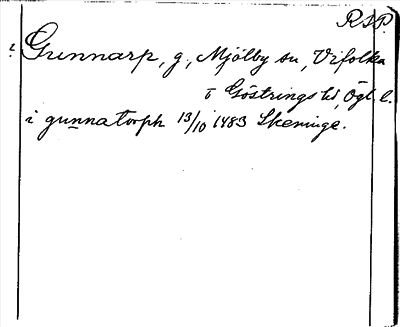 RSP.
? Gunnarp, g., Mjölby sn, Vifolka
o Göstrings hd, Ögl l.
i gunnatorph 13/10 1483 Skeninge.